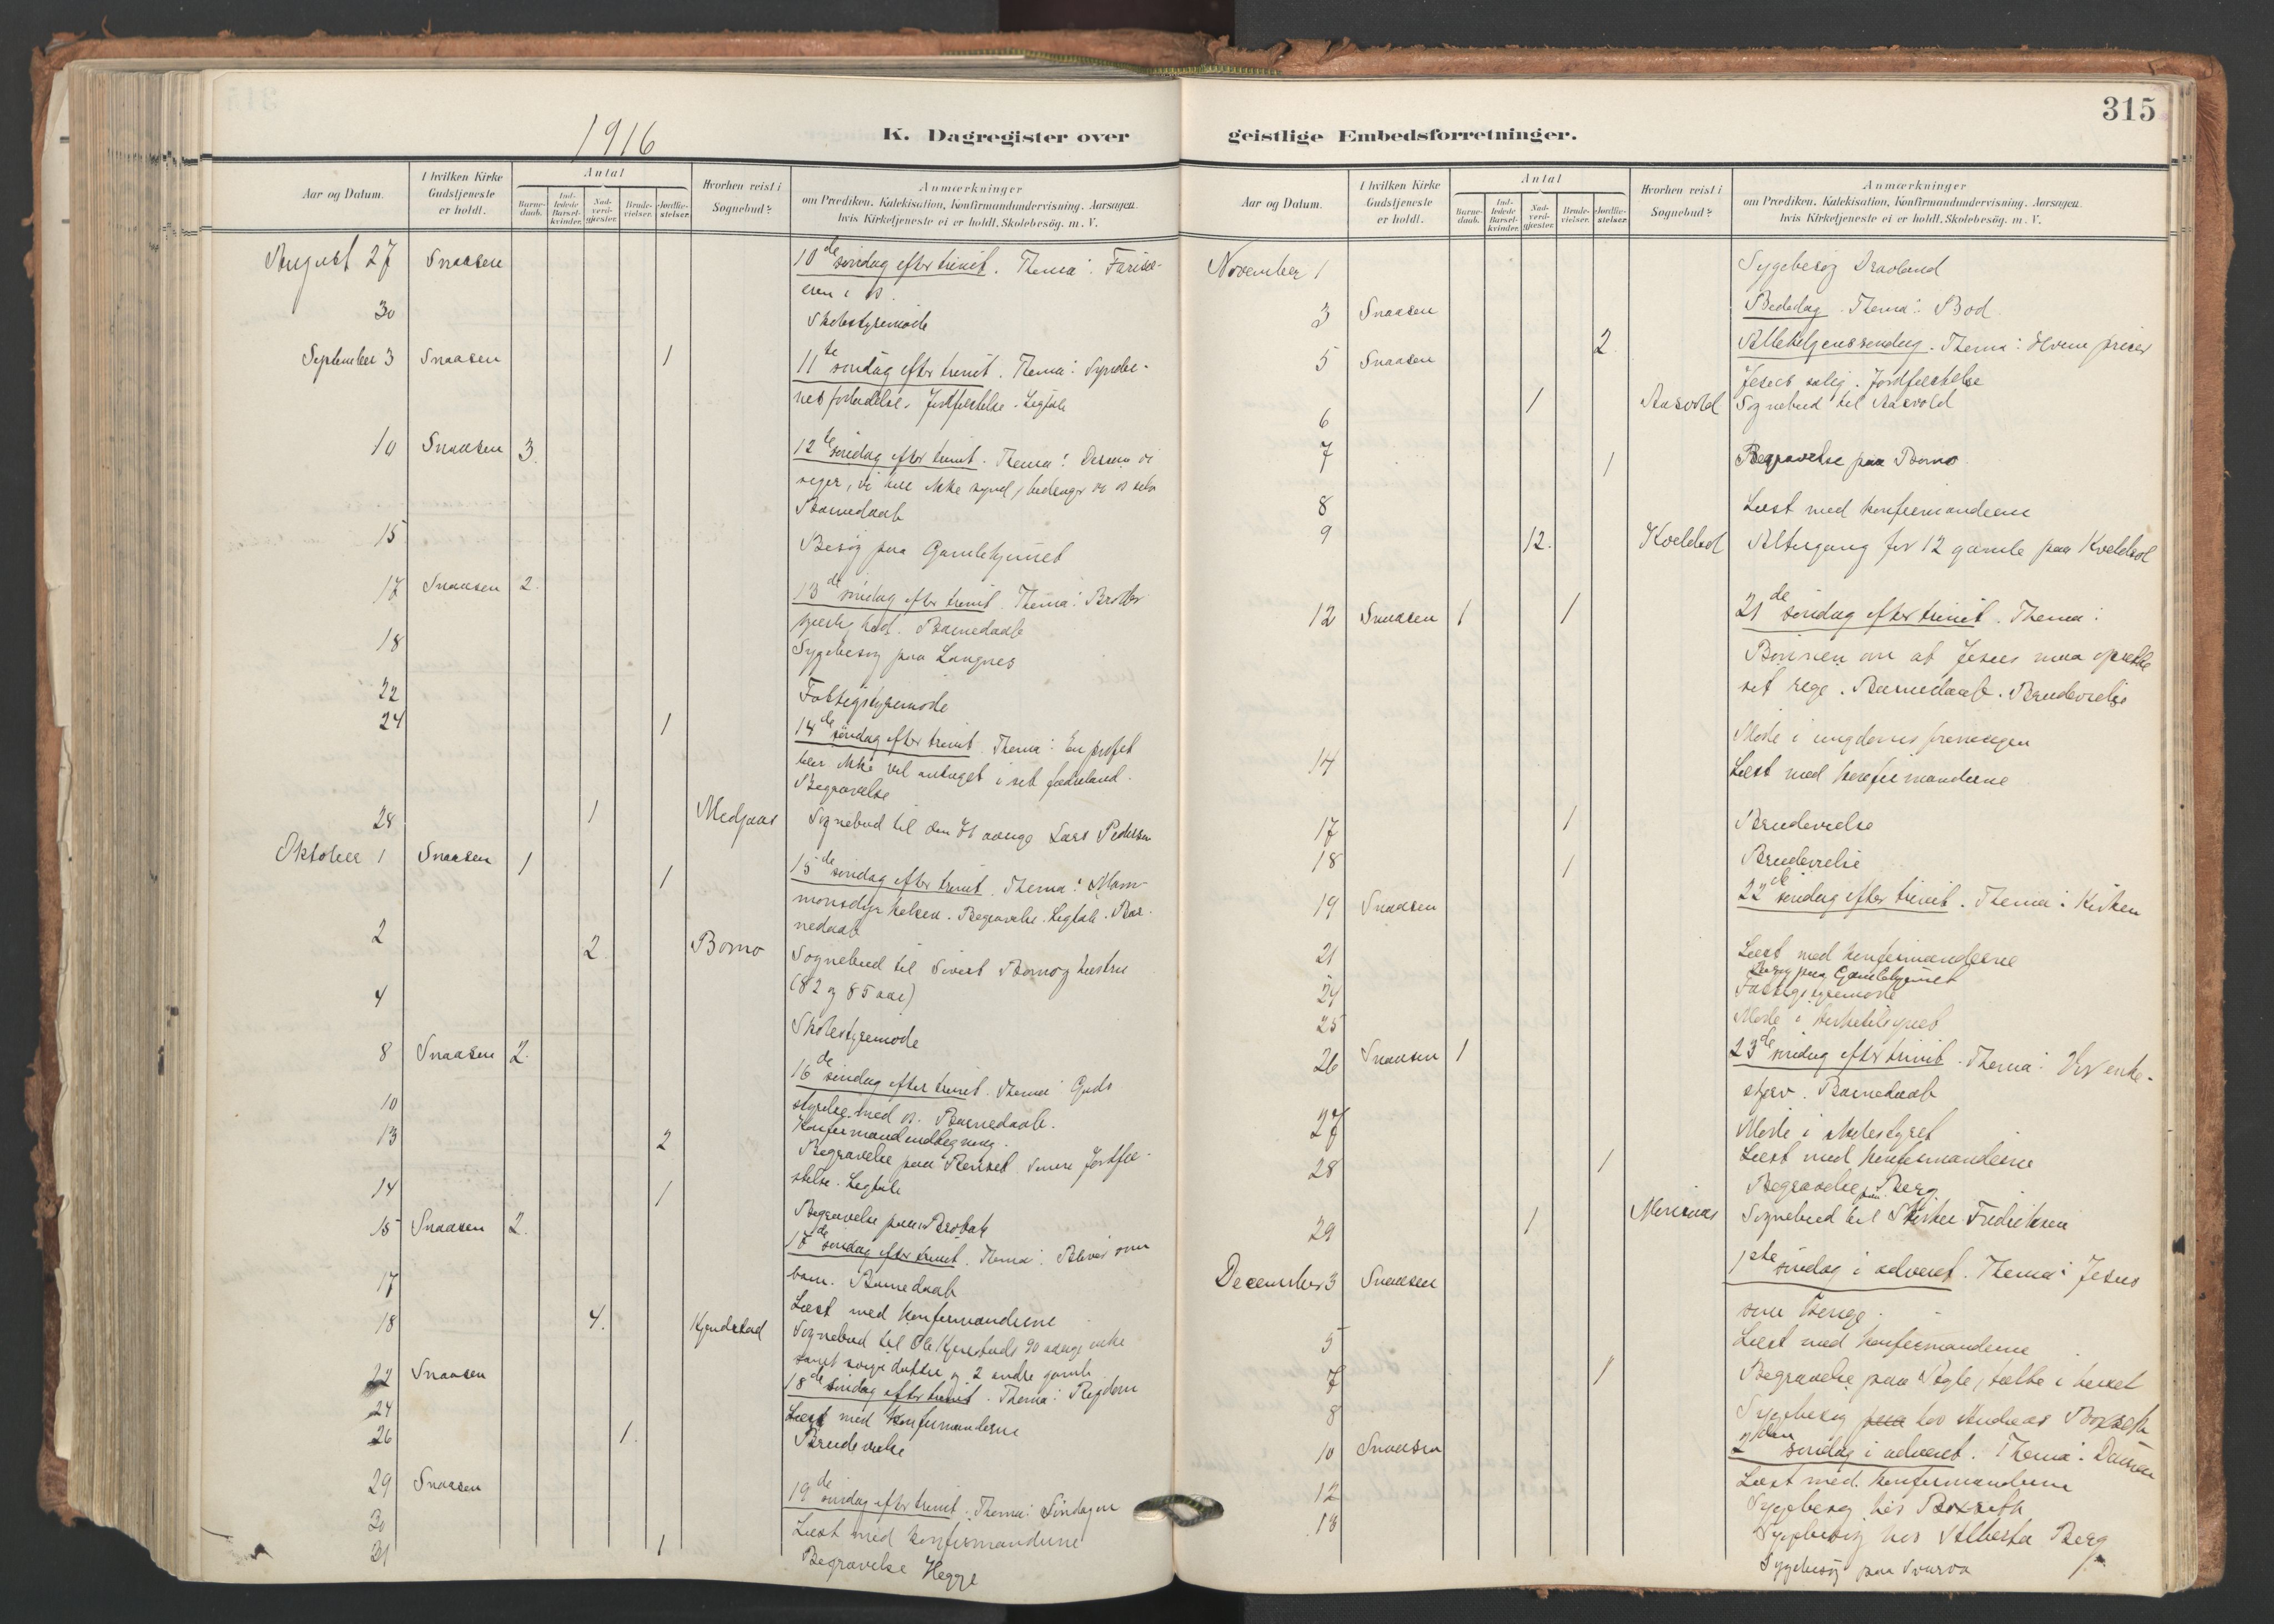 315
1916
K. Dagregister over
geistlige Embedsforretninger.
Aar og Datum.
I hvilken Kirke Gudstjeneste er holdt.
Antal
Barnedaab.
Indledede Barselkvinder.
Nadverdgjæster.
Brudevielser.
Jordfæstelser.
Hvorhen reist i Sognebud?
Anmærkninger
om Prædiken, Katekisation, Konfirmandundervisning. Aarsagen
hvis Kirketjeneste ei er holdt. Skolebesög. m. V.
August 27 Snaasen 10de søndag efter trinit. Thema: Farisæ-
eren i os.
30 Skolestyremøde
September 3 Snaasen 1 11te søndag efter trinit. Thema: Synder-
nes forladelse. Jordfæstelse. Ligtale
10 Snaasen 3 12te søndag efter trinit. Thema: Dersom vi
siger, vi har ikke synd, bedrager vi os selv
Barnedaab
15 Besøg paa Gamlehjemmet
17 Snaasen 2. 13de søndag efter trinit. Thema:
Barnedaab
18 Sygebesøg paa Langnes
22 Fattigstyremøde
24 1 14de søndag efter trinit. Thema: En profet
blir ikke vel antaget i sit fædreland.
Begravelse
28 1 Medjaas Sognebud til den aarige Lars Pedersen
Oktober 1 Snaasen 1 1 15de søndag efter trinit. Thema: Mam-
monsdyrkelsen. Begravelse. Ligtale. Bar-
nedaab
2 2 Bomo Sognebud til Sivert Bomo og hustru
(82 og 85 aar)
4 Skolestyremøde
8 Snaasen 2. 16de søndag efter trinit. Thema: Guds
styrelse med os. Barnedaab.
10 Konfirmandindtegning.
13 2 Begravelse paa Jordfæ-
stelse. Ligtale
14 1 Begravelse paa
15 Snaasen 2. søndag efter trinit. Thema: Bliver som
barn. Barnedaab
17 Læst med konfirmanderne
18 4. Kjendstad Sognebud til Ole Kjenstads 90 aarige enke
samt svigerdatter og 2 andre gamle
22 Snaasen 18de søndag efter trinit. Thema: Rigdom
24 Læst med konfirmanderne
26 1. Brudevielse
29 Snaasen 19de søndag efter trinit. Thema: Søndagen
30 Læst med konfirmanderne
31 1 Begravelse Hegge
Aar og Datum.
I hvilken Kirke Gudstjeneste er holdt.
Antal
Barnedaab.
Indledede Barselkvinder.
Nadverdgjæster.
Brudevielser.
Jordfæstelser.
Hvorhen reist i Sognebud?
Anmærkninger
om Prædiken, Katekisation, Konfirmandundervisning. Aarsagen
hvis Kirketjeneste ei er holdt. Skolebesög. m. V.
November 1 Sygebesøg
3 Snaasen Bededag. Thema: Bod
5 Snaasen 2 Allehelgenssøndag. Thema: Hvem priser
Jesus salig. Jordfæstelse
6 1 Aasvold Sognebud til Aasvold
7 1 Begravelse paa Bomo
8 Læst med konfirmanderne
9 12. Kveldsol Altergang for 12 gamle paa Kveldsol
12 Snaasen 1 1 21de søndag efter trinit. Thema:
Bønnen om at Jesus maa oprette
sit rige. Barnedaab. Brudevielse
Møde i ungdomsforeningen
14 Læst med konfirmanderne
17 1 Brudevielse
18 1 Brudevielse
19 Snaasen 22de søndag efter trinit. Thema: Kirken
21 Læst med konfirmanderne
Besøg paa Gamlehjemmet
24 Fattigstyremøde
25 Møde i
26 Snaasen 1 23de søndag efter trinit. Thema: Vor
Barnedaab
27 Møde i skolestyret
28 1 Læst med konfirmanderne
Begravelse paa Berg
29 1 Sognebud til Fredriksen
December 3 Snaasen 1ste søndag i advent. Thema: Jesus
som konge.
5 Læst med konfirmanderne
7 1 Begravelse paa
8 Sygebesøg hos Andreas
10 Snaasen 2den søndag i advent. Thema:
12 Læst med konfirmanderne
Sygebesøg hos
18 Sygebesøg hos Alberta Berg
Sygebesøg paa